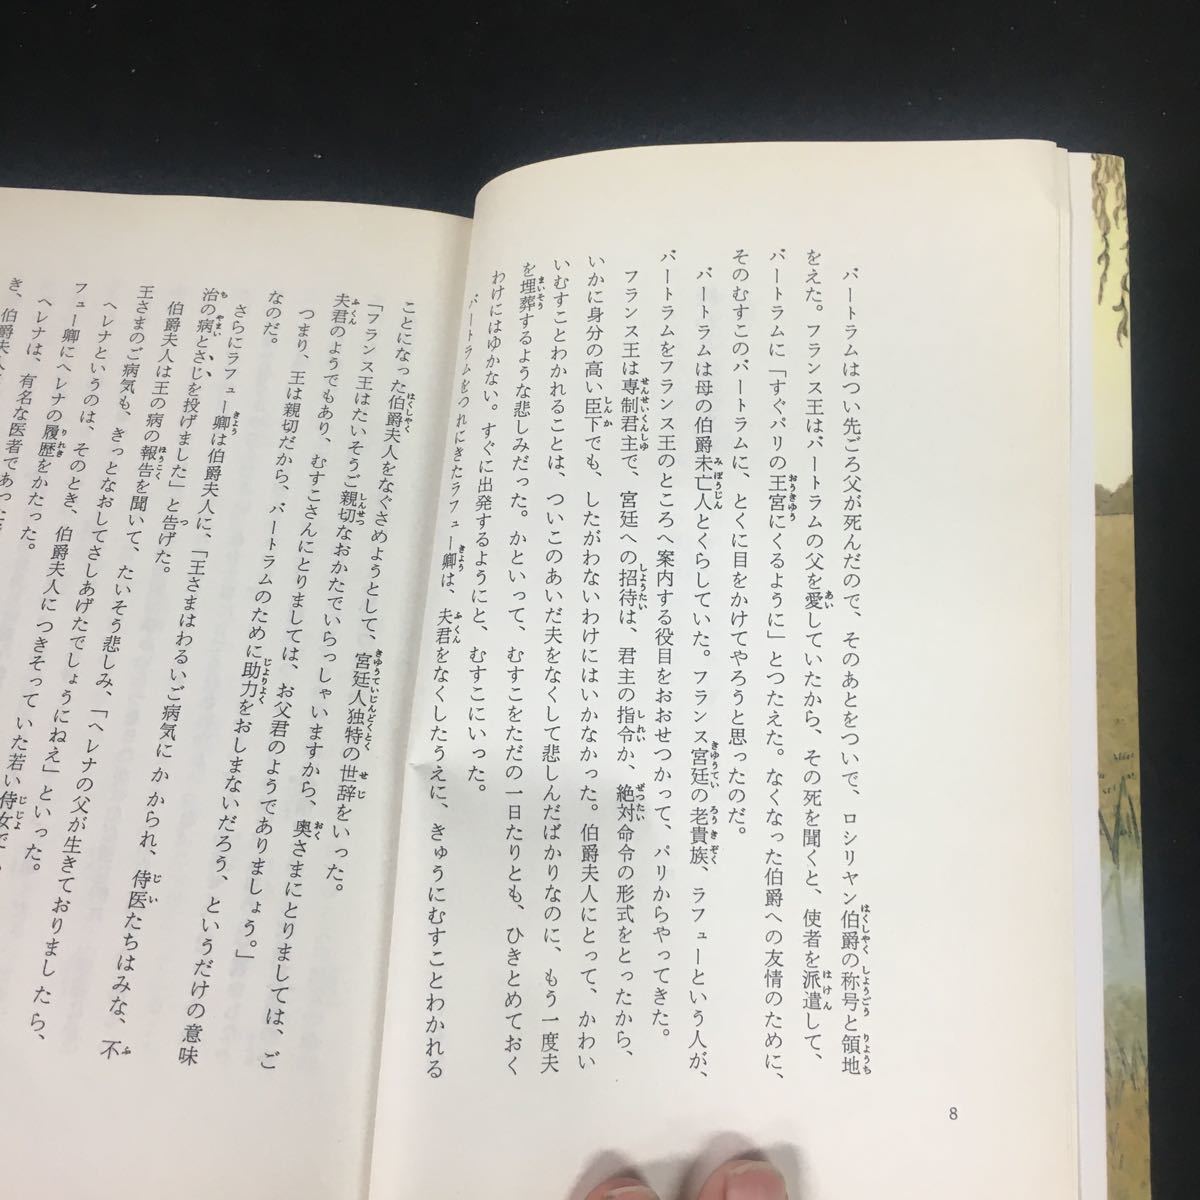 バートラムはつい先ごろ父が死んだので、そのあとをついで、ロシリヤン伯爵の称号と領地
をえた。フランス王はバートラムの父を愛していたから、その死を聞くと、使者を派遣して、
バートラムに「すぐパリの王宮にくるように」とつたえた。なくなった伯爵への友情のために、
そのむすこのバートラムに、とくに目をかけてやろうと思ったのだ。
バートラムは母の伯爵未亡人とくらしていた。フランス宮廷の老貴族、ラフューという人が、
バートラムをフランス王のところへ案内する役目をおおせつかって、パリからやってきた。
フランス王は専制君主で、宮廷への招待は、君主の指令か、絶対命令の形式をとったから、
いかに身分の高い臣下でも、したがわないわけにはいかなかった。伯爵夫人にとって、かわい
いむすことわかれることは、ついこのあいだ夫をなくして悲しんだばかりなのに、もう一度夫
を埋葬するような悲しみだった。かといって、むすこをただの一日たりとも、ひきとめておく
わけにはゆかない。すぐに出発するようにと、むすこにいった。
バートラムをつれにきたラフュー卿は、夫君をなくしたうえに、きゅうにむすことわかれる
8
ことになった伯爵夫人をなぐさめようとして、宮廷人独特の世辞をいった。
「フランス王はたいそうご親切なおかたでいらっしゃいますから、奥さまにとりましては、ご
夫君のようでもあり、むすこさんにとりましては、お父君のようでありましょう。」
つまり、王は親切だから、バートラムのために助力をおしまないだろう、というだけの意味
なのだ。
さらにラフュー卿は伯爵夫人に、「王さまはわるいご病気にかかられ、侍医たちはみな、不
治の病とさじを投げました」と告げた。
伯爵夫人は王の病の報告を聞いて、たいそう悲しみ、「ヘレナの父が生きておりましたら、
王さまのご病気も、きっとなおしてさしあげたでしょうにねえ」といった。
ヘレナというのは、そのとき、伯爵夫人につきそっていた若い侍女で、
フュー卿にヘレナの履歴をかたった。
ヘレナは、有名な医者であった
き、伯爵夫人